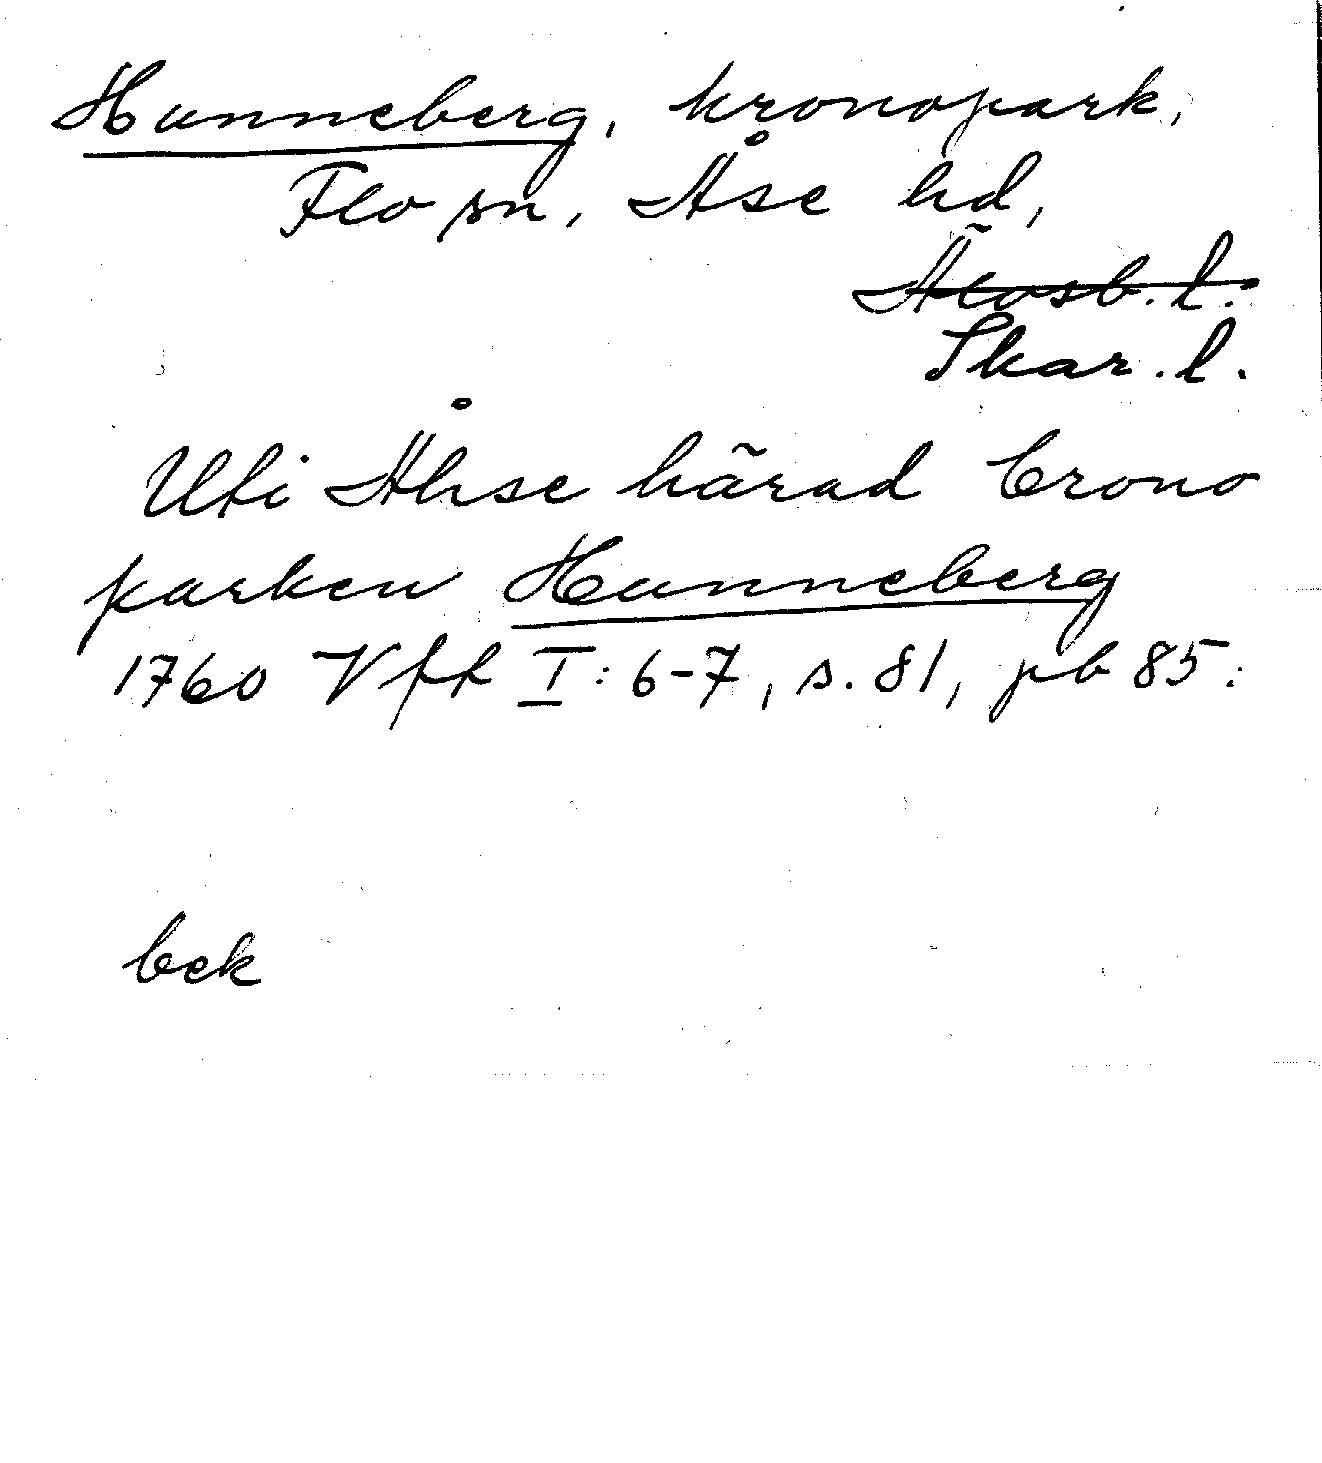 Hunneberg, kronopark,
Flo sn, Åse hd,
Älvsb. l.
Skar. l.
Uti Åhse härad Crono
parken Hunneberg
1760 Vfft I: 6-7, s. 81, pb 85:
bek